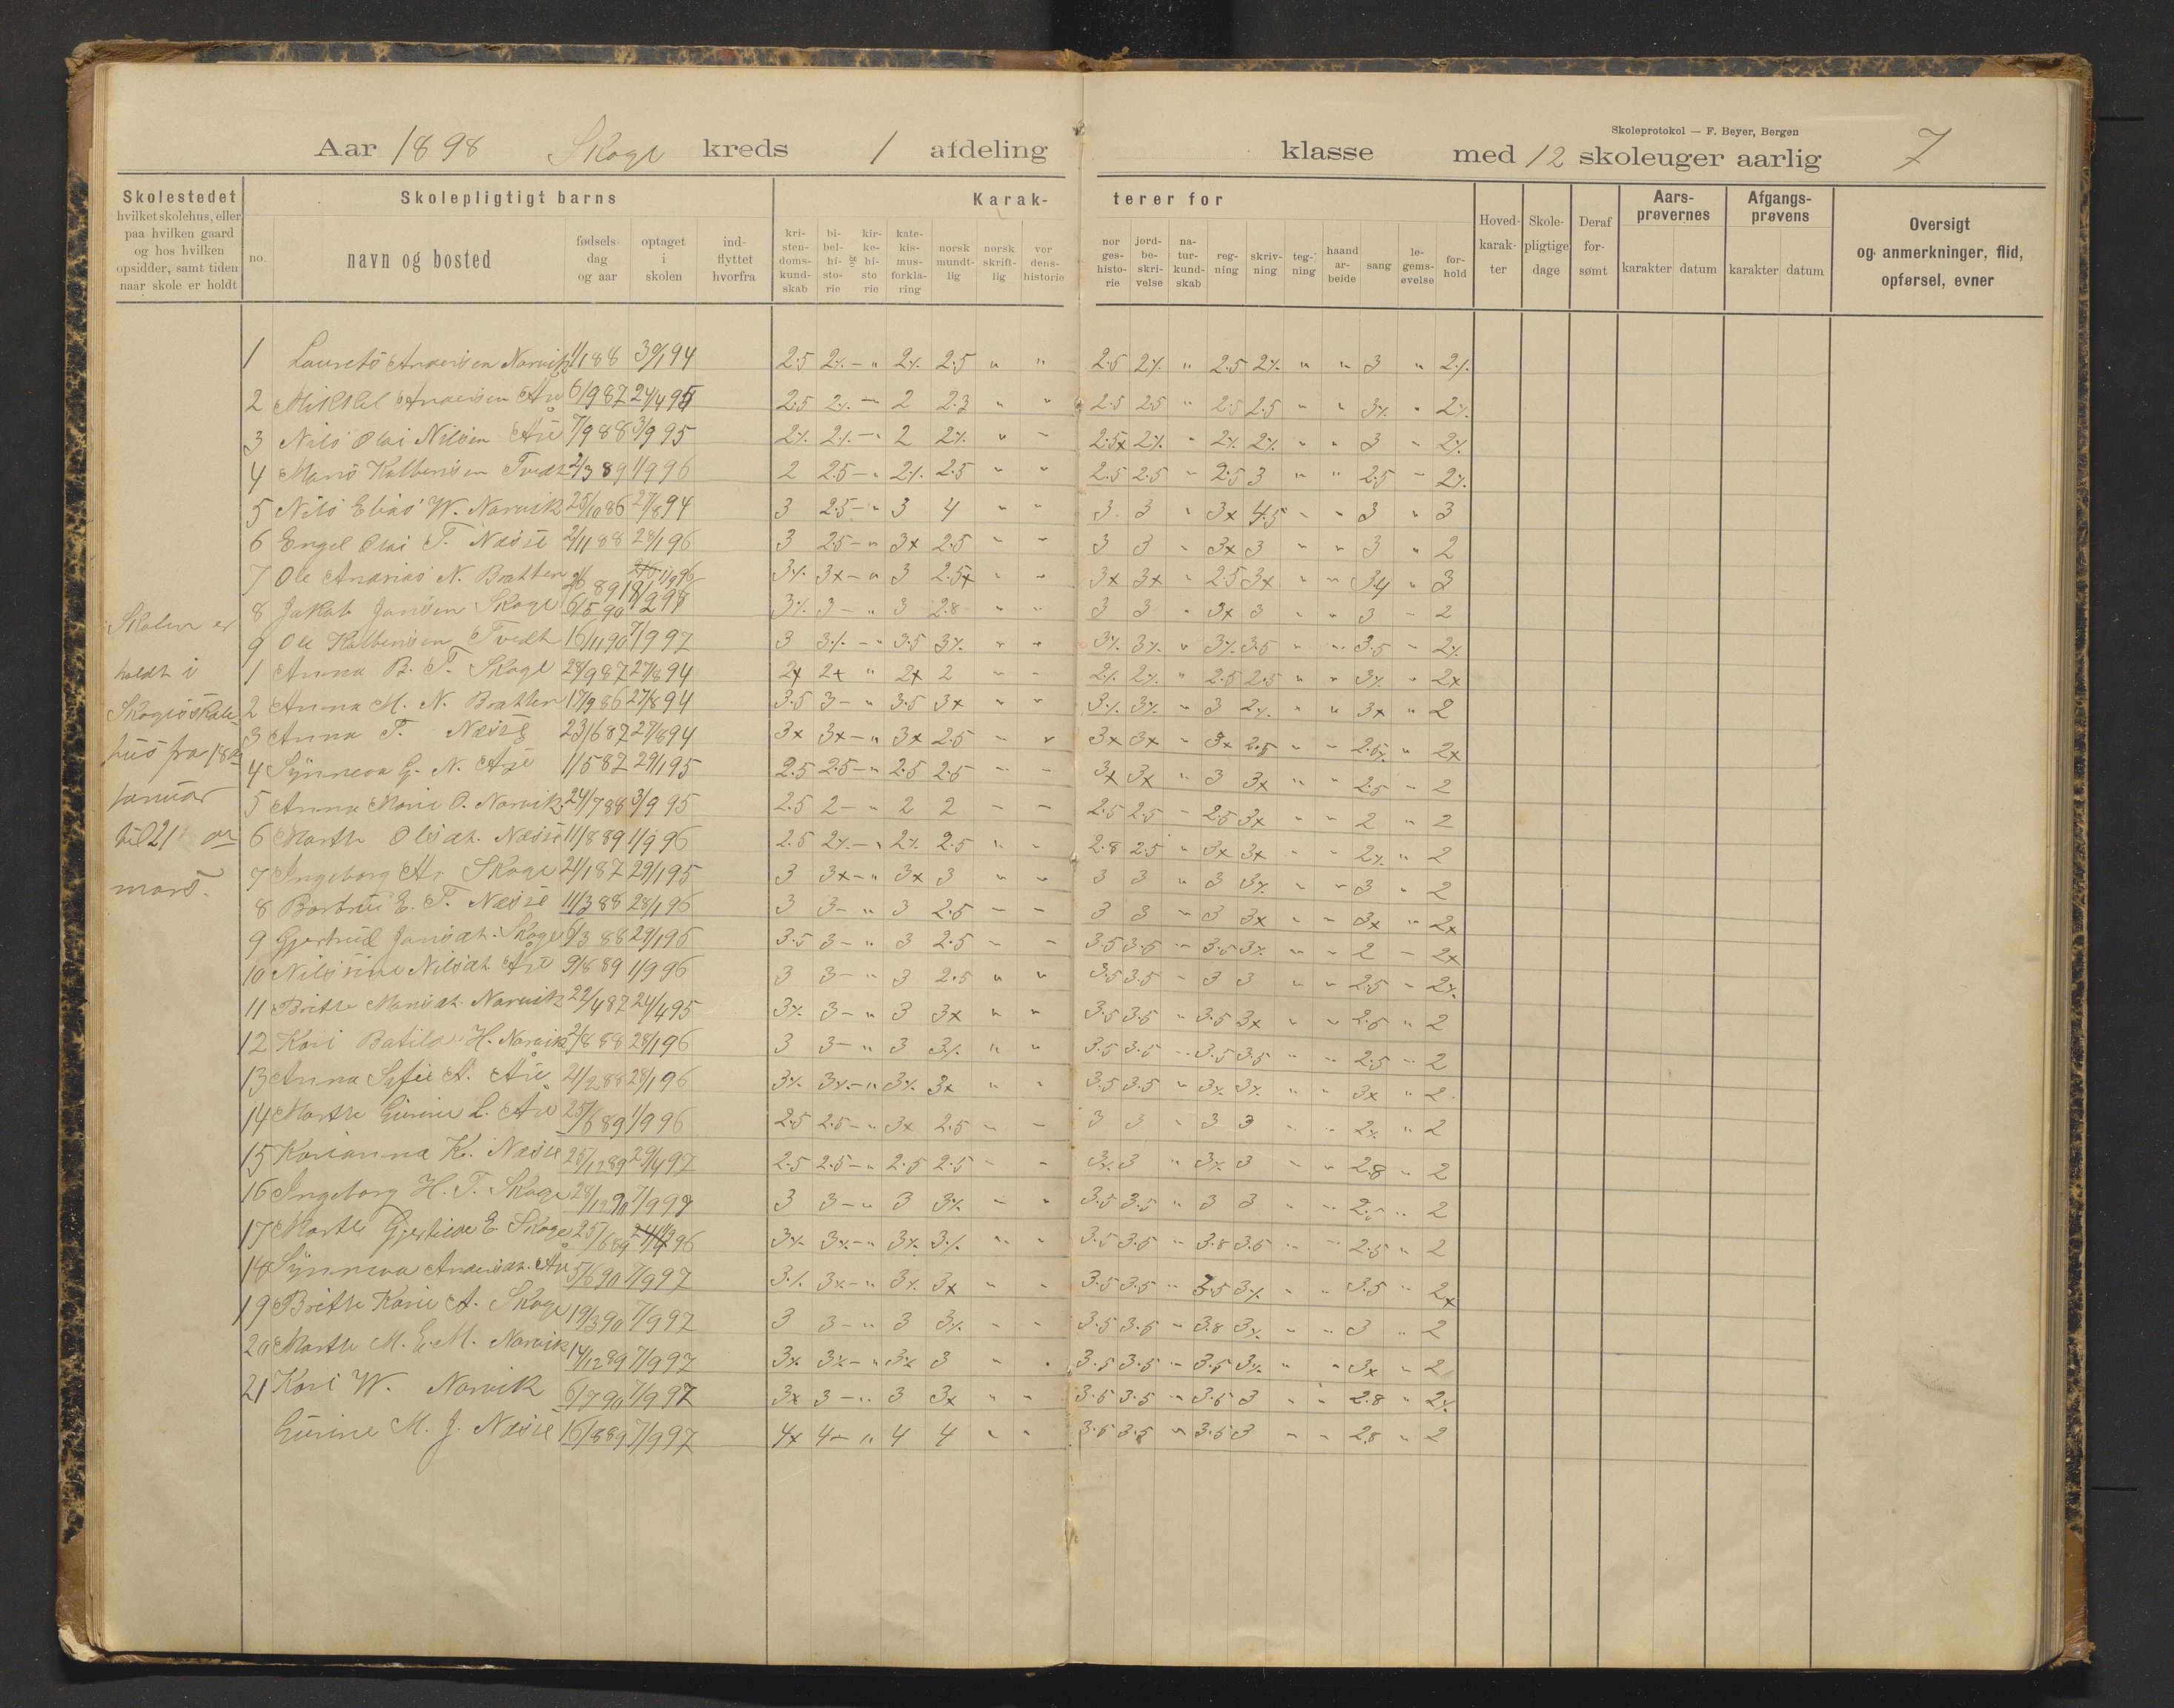 Skoleprotokol — F. Beyer, Bergen
Aar 1898 Skoge kreds 1 afdeling klasse med 12 skoleuger aarlig 7
Skolestedet hvilket skolehus, eller paa hvilken gaard og hos hvilken opsidder, samt tiden naar skole er holdt
Skolepligtigt barns
no. navn og bosted fødsels- dag og aar optaget i skolen ind- flyttet hvorfra
Karak- terer for
kri- sten- doms- kund- skab bi- bel- hi- sto- rie og kir- ke- hi- sto rie kate- kis- mus- forkla- ring norsk mundt- lig norsk skrift- lig ver dens- historie
nor ges- histo- rie jord- be- skri- velse na- tur- kund- skab reg- ning skriv- ning teg- ning haand ar- beide sang le- gems- øvelse for- hold
Hoved- karak- ter Skole- pligtige dage Deraf for- sømt
Aars- prøvernes karakter datum
Afgangs- prøvens karakter datum
Oversigt og anmerkninger, flid, opførsel, evner
Skolen er
holdt i
Skoges skole-
hus fra 18de
januar
til 21 de
mars.
1 Laurets Andersen Narvik 1/1 88 30/1 94 2.5 2% – " 2% 2.5 " " 2.5 2% " 2.5 2% " " 3 " 2%
2 Mikkel Andersen Åse 6/9 87 24/4 95 2.5 2% – 2 2.3 " " 2.5 2.5 " 2.5 2.5 " " 3% " 2%
3 Nils Olai Nilsen Åse 7/9 88 3/9 95 2% 2% – " 2 2% " – 2.5x 2% " 2% 2% " " 3 " 2%
4 Mons Kolbensen Tvedt 2/3 89 1/9 96 2 2.5 – " 2% 2.5 " " 2.5 2.5 " 2.5 3 " " 2.5 – 2%
5 Nils Elias W. Narvik 25/10 86 27/8 94 3 2.5 – " 3 4 " " 3 3 " 3x 4.5 " " 3 " 3
6 Engel Olai T. Næsse 2/11 88 28/1 96 3 2.5 – " 3x 2.5 " " 3 3 " 3x 3 " " 3 " 2
7 Ole Andrias N. Bratten 3% 3x – " 3 2.5x " " 3x 3x " 2.5 3x " " 3.4 " 3
8 Jakob Jansen Skoge 6/5 90 3% 3 – " 3 2.8 " " 3 3 " 3x 3 " " 3 – 2
9 Ole Kolbensen Tvedt 16/11 90 7/9 97 3 3% – " 3.5 3% " " 3% 3% " 3% 3.5 " " 3.5 – 2%
1 Anna B. T. Skoge 28/9 87 27/8 94 2x 2x " 2x 2 " " 2% 2% " 2.5 2.5 " " 3% " 2x
2 Anna M. N. Bratten 17/9 86 27/8 94 3.5 3 – " 3.5 3x " " 3% 3% " 3 2% " " 3x " 2
3 Anna T. Næsse 23/6 87 27/8 94 3x 3x – " 3x 2.5 – " 3x 3x " 3x 2.8 " " 2.5% " 2x
4 Synneva G. N. Åse 1/5 87 29/1 95 2.5 2.5 – " 2.5 2.5 – – 3x 3x " 3 3x " " 2.5 – 2
5 Anna Marie O. Narvik 24/7 88 3/9 95 2.5 2 – " 2 2 – – 2.5 2.5 – 2.5 3x " " 2 " 2
6 Marthe Olsdt. Næsse 11/8 89 1/9 96 2.5 2% – " 2% 2.5 " – 2.8 2.5 " 3x 3x " " 2% " 2
7 Ingeborg A. Skoge 21/1 87 29/1 95 3 3x – " 3x 3 " " 3 3 " 3 3% " " 3 " 2
8 Barbru E. T. Næsse 11/3 88 28/1 96 3 3 – " 3 2.5 – – 3 3 – 3 3x " " 3x " 2x
9 Gjertrud Jansdt. Skoge 6/3 88 29/1 96 3.5 3 – " 3 2.5 – – 3.5 3.5 – 3.5 3% " " 2 – 2x
10 Nilsine Nilsdt. Åse 9/8 89 1/9 96 3 3 – " 3 2.5 " " 3.5 3.5 – 3 3 " " 2.5 – 2%
11 Brithe Monsdt. Narvik 22/4 87 24/4 95 3% 3 – " 3 3x " " 3.5 3.5 " 3.5 3x " " 2.5 " 2
12 Kari Batilde H. Narvik 2/8 88 28/1 96 3 3 – " 3 3% " " 3.5 3.5 – 3.5 3.5 " " 2.5 – 2
13 Anna Sofie A. Åse 21/2 88 28/1 96 3% 3% – " 3% 3x " " 3.5 3.5 " 3% 3% " " 3x " 2
14 Marthe Gurine L. Åse 25/6 89 1/9 96 2.5 2.5 – " 3x 2.5 – – 3 3 " 3 3 " " 2% " 2
15 Karianna K. Næsse 25/12 89 29/4 97 2.5 2.5 – " 2.5 2.5 – – 3% 3 " 3% 3 " " 2.8 – 2
16 Ingeborg H. T. Skoge 28/12 90 7/9 97 3 3 – " 3 3% – " 3.5 3.5 " 3 3 " " 2.5 " 2
17 Marthe Gjertine E. Skoge 25/6 89 3% 3% – " 3% 3% " " 3.5 3.5 – 3.8 3.5 " " 2.5 " 2
18 Synneva Andersdt. Åse 5/6 90 7/9 97 3% 3% – " 3% 3x " " 3.5 3.5 " 3.5 3% " " 3.5 " 2x
19 Brithe Karie A. Skoge 19/3 90 7/9 97 3 3 – " 3 3% – – 3.5 3.5 – 3.8 3% " " 3 " 2
20 Marthe M. E. M. Narvik 14/12 89 7/9 97 3x 3x – " 3x 3 " " 3.5 3.5 – 3.5 3% " " 3x " 2
21 Kari W. Narvik 6/7 90 7/9 97 3x 3 – " 3 3x " " 3.5 3.5 " 3.5 3 " " 2.8 " 2%
Gurine M. J. Næsse 16/8 89 7/9 97 4x 4 – " 4 4 " " 3.5 3.5 " 3.5 3 " – 2.8 " 2